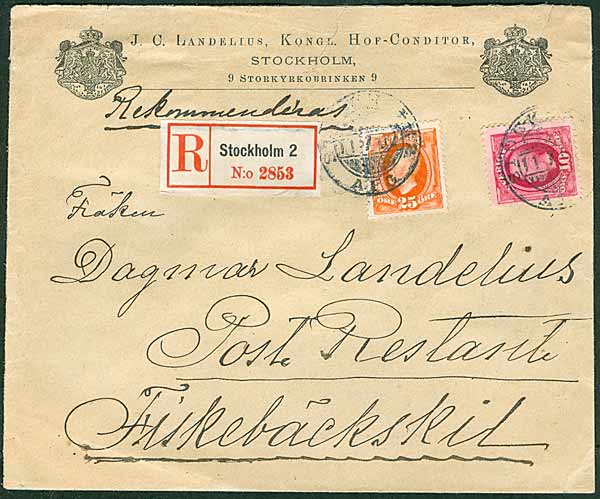 J. C. Landelius, Kongl. Hof-Conditor,
STOCKHOLM,
9 Storkyrkobrinken 9
Rekommenderas
R Stockholm 2
N:o 2853
A.F.G.
ÖRE 25 ÖRE
Fröken
Dagmar Landelius
Poste Restante
Fiskebäckskil